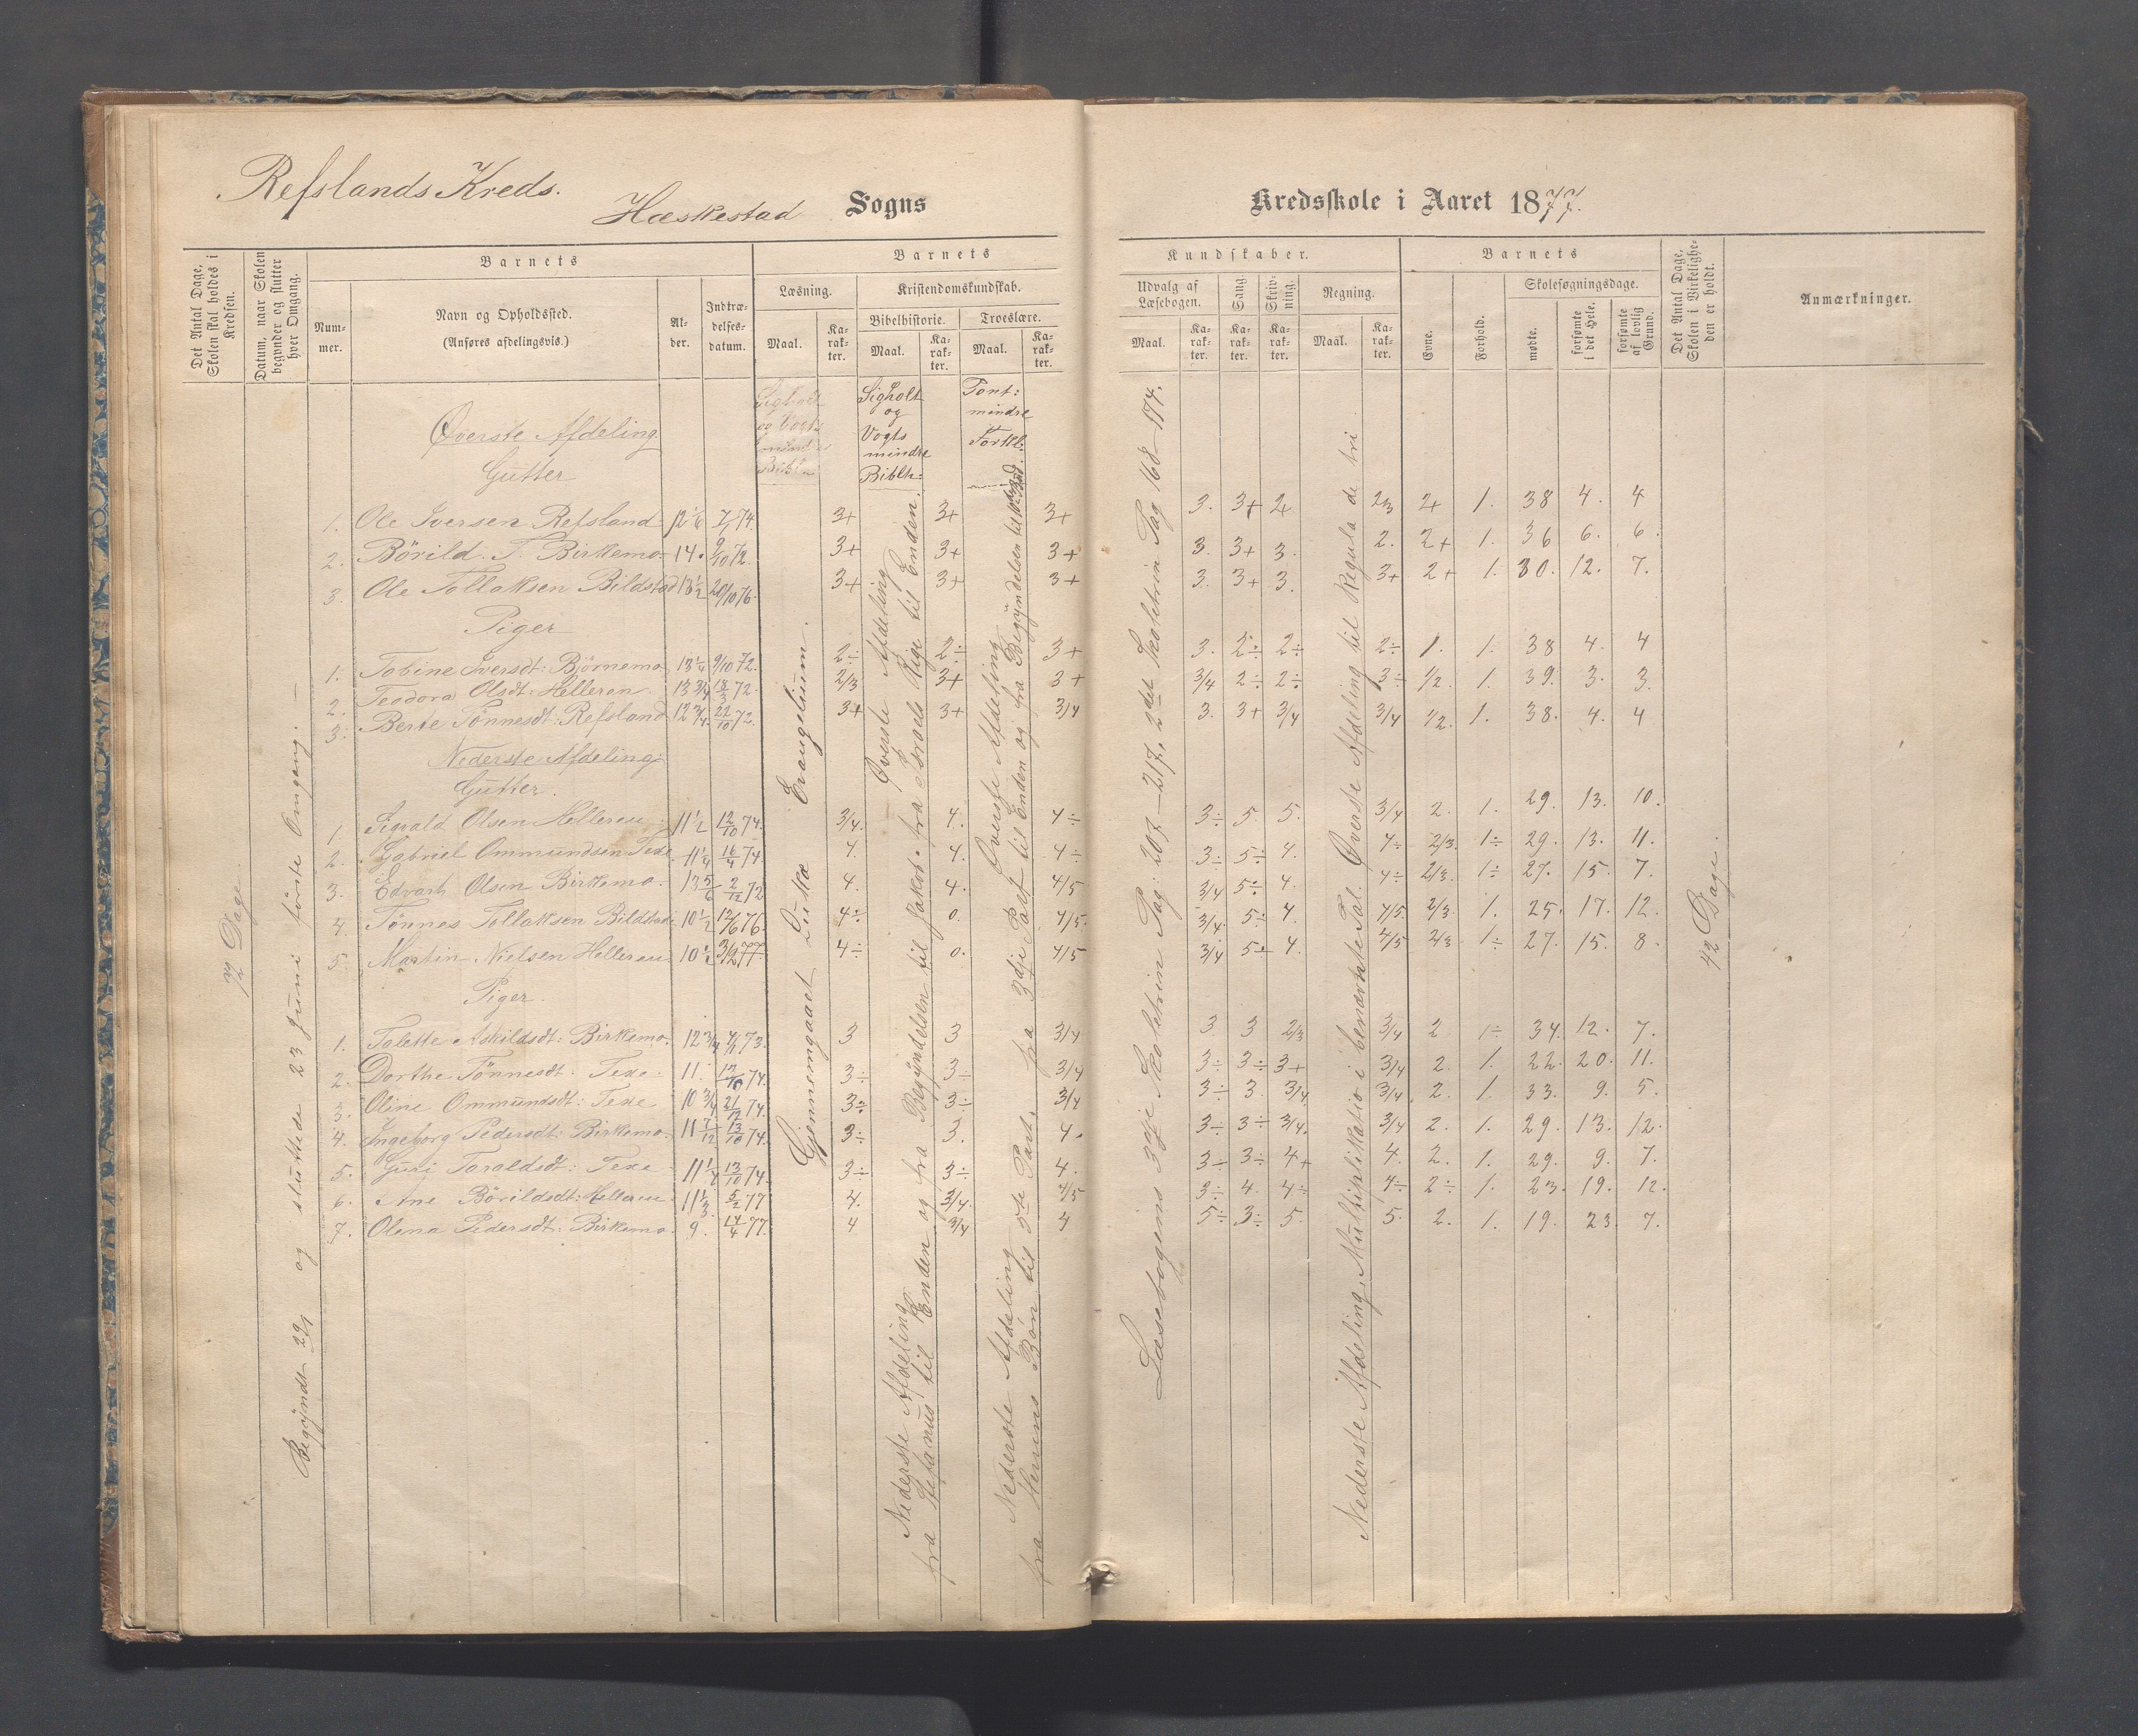 Refslands Kreds.
Hæskestad Sogns
Kredsskole i Aaret 1877.
Det Antal Dage, Skolen skal holdes i Kredsen.
Datum, naar Skolen begynder og slutter hver Omgang.
Barnets
Num-mer.
Navn og Opholdssted.
(Anføres afdelingsvis.)
Al-der.
Indtræ-delses-datum.
Barnets
Læsning.
Kristendomskundskab.
Bibelhistorie.
Troeslære.
Maal.
Ka-rak-ter.
Maal.
Ka-rak-ter.
Maal.
Ka-rak-ter.
Kundskaber.
Udvalg af Læsebogen.
Sang
Skriv-ning.
Regning.
Maal.
Ka-rak-ter.
Ka-rak-ter.
Ka-rak-ter.
Maal.
Ka-rak-ter.
Barnets
Evne.
Forhold.
Skolesøgningsdage.
mødte.
forsømte i det Hele.
forsømte af lovlig Grund.
Det Antal Dage, Skolen i Virkelighe-den er holdt.
Anmærkninger.
72 Dage
Begyndt 29/1 og sluttede 23 Juni første Omgang. —
Sigholt og Vogts mindre Biblh:
Pont: mindre Forkl:
Øverste Afdeling
Gutter
1. Ole Iversen Refsland 12 1/6 7/1 74. 3+ 3+ 3+ 3. 3+ 2+ 2/3 2+ 1. 38 4. 4
2. Börild. T. Birkemo 14. 9/10 72. 3+ 3+ 3+ 3. 3+ 3. 2. 2+ 1. 36 6. 6.
3. Ole Tollaksen Bildstad 13 1/2 20/10 76. 3+ 3+ 3+ 3. 3+ 3. 3+ 2+ 1. 30. 12. 7.
Piger
1. Tobine Iversdt: Bjørnemo 13 1/4 9/10 72. 2÷ 2÷ 3+ 3. 2÷ 2÷ 2÷ 1. 1. 38 4. 4
2. Teodora Olsdt: Helleren 13 3/4 18/3 72. 2/3 3+ 3+ 3/4 2÷ 2÷ 3÷ 1/2. 1. 39. 3. 3.
3. Berte Tönnesdt: Refsland 12 3/4 22/10 72. 3+ 3+ 3/4 3. 3+ 3/4 3/4 1/2. 1. 38. 4. 4
Nederste Afdeling
Gutter.
1. Sigvald Olsen Helleren 11 1/2 12/10 74. 3/4. 4. 4÷ 3÷ 5. 5. 3/4 2. 1. 29. 13. 10.
2. Gabriel Ommundsen Texe 11 1/4 16/4 74. 4. 4. 4÷ 3÷ 5÷ 4. 4÷ 2/3. 1÷ 29. 13. 11.
3. Edvart Olsen Birkemo. 13 5/6 2/12 72 4. 4. 4/5 3/4 5÷ 4. 4÷ 2/3. 1÷ 27. 15. 7.
4. Tönnes Tollaksen Bildstad 10 1/2 12/6 76. 4÷ 0. 4/5. 3/4. 5÷ 4. 4/5. 2/3. 1. 25. 17. 12.
5. Martin Nielsen Helleren 10 1/2 3/2 77. 4÷ 0. 4/5 3/4 5÷ 4. 4/5 2/3 1÷ 27. 15. 8.
Piger.
1. Talette Askildsdt: Birkemo. 12 3/4 4/1 73. 3 3 3/4 3 3 2/3 3/4 2 1÷ 34. 12. 7.
2. Dorthe Tönnesdt: Texe. 11. 12/10 74. 3÷ 3÷ 3/4 3÷ 3÷ 3+ 3/4 2. 1. 22. 20. 11.
3. Oline Ommundsdt: Texe 10 3/4 21/12 74. 3÷ 3÷ 3/4 3÷ 3. 3/4 3/4. 2. 1. 33. 9. 5.
4. Ingeborg Pedersdt: Birkemo. 11 7/12 13/10 74. 3÷ 3. 4. 3÷ 3÷ 3/4. 3/4 2. 1. 29. 13. 12.
5. Guri Taraldsdt: Texe 11 1/4 13/10 74. 3÷ 3÷ 4. 3÷ 3÷ 4+ 4. 2. 1. 29. 9. 7.
6. Ane Börildsdt: Helleren 11 1/3 5/2 77 4. 3/4. 4/5 3÷ 4. 4÷ 4÷ 2÷ 1. 23. 19. 12.
7. Olena Pedersdt: Birkemo. 9. 14/4 77. 4 3/4 4 5÷ 3÷ 5. 5. 2. 1. 19. 23. 7.
Gjennemgaaet Lukæ Evangelium.
Øverste Afdeling
fra Stefanus til Enden og fra Begyndelsen til Jakob. fra Israels Rige til Enden.
Nederste Afdeling
Øverste Afdeling
fra 3die Part til Enden og fra Begyndelsen til
Nederste Afdeling
fra Herrens Bön til 5te Part.
Læsebogens 3die Skoletrin Pag: 207—217, 2det Skoletrin Pag 168—174.
Nederste Afdeling, Multiplikatio i benævnte Tal. Øverste Afdeling til Regula de tri
42 Dage.